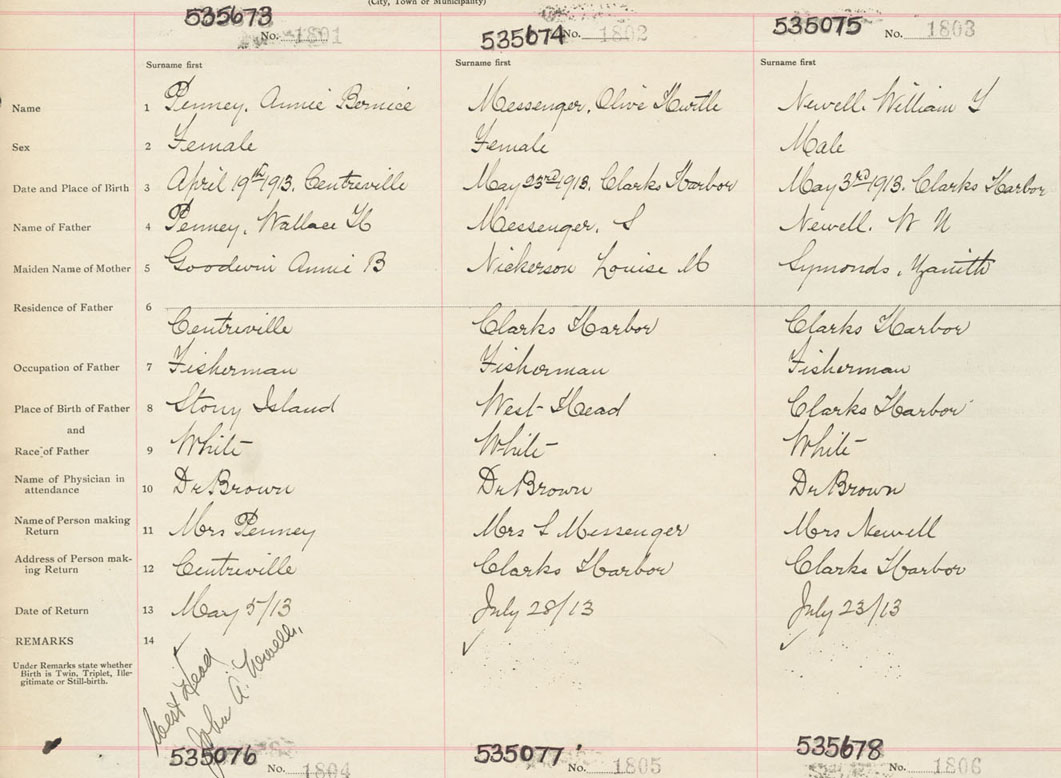 (City, Town or Municipality)
535673 No. 1801
535674 No. 1802
535075 No. 1803
Surname first Surname first Surname first
Name 1 Penney, Annie Bernice Messenger, Olive Newell. William
Sex 2 Female Female Male
Date and Place of Birth 3 April 19th 1913, Centreville May 23rd 1913, Clarks Harbor May 3rd 1913. Clarks Harbor
Name of Father 4 Penney, Wallace H Messenger, S Newell. W N
Maiden Name of Mother 5 Goodwin Annie B Nickerson Louise M Symonds,
Residence of Father 6
Centreville Clarks Harbor Clarks Harbor
Occupation of Father 7 Fisherman Fisherman Fisherman
Place of Birth of Father 8 Stony Island West Head Clarks Harbor
and
Race of Father 9 White White White
Name of Physician in
attendance 10 Dr Brown Dr Brown Dr Brown
Name of Person making
Return 11 Mrs Penney Mrs S Messenger Mrs Newell
Address of Person mak-
ing Return 12 Centreville Clarks Harbor Clarks Harbor
Date of Return 13 May 5/13 July 28/13 July 23/13
REMARKS 14
Under Remarks state whether
Birth is Twin, Triplet, Ille-
gitimate or Still-birth.
West Head
John A. Newell,
535076 No. 1804
535077 No. 1805
535678 No. 1806